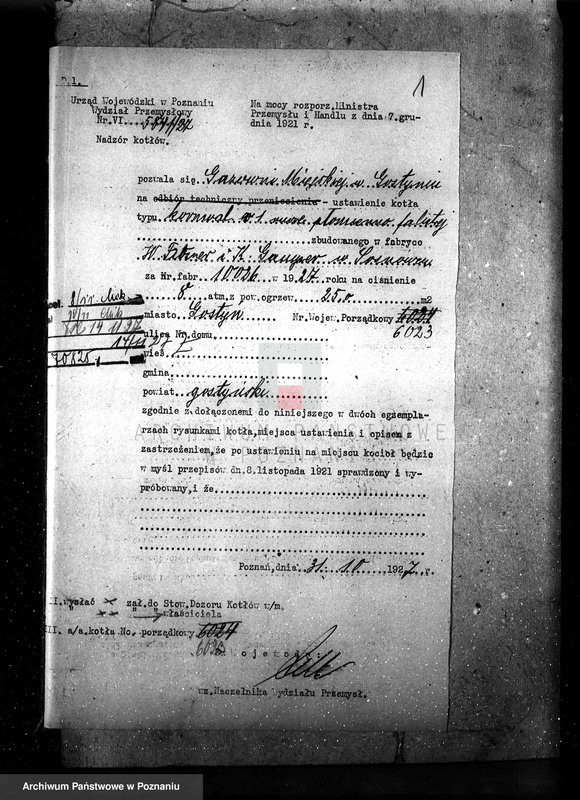 1
D.1.
Urząd Wojewódzki w Poznaniu
Wydział Przemysłowy
Nr.VI....584/27
Nadzór kotłów.
Na mocy rozporz.Ministra
Przemysłu i Handlu z dnia 7.gru-
dnia 1921 r.
pozwala się Gazowni Miejskiej w Gostyniu
na odbiór techniczny przeniesienia - ustawienie kotła
typu kornwal. o 1. rurze płomienno falistej
zbudowanego w fabryce
W. Fitzner i K. Gamper w Sosnowcu
za Nr.fabr 10026 w 1927 roku na ciśnienie
8 atm.z pow.ogrzew. 25.0 m2
miasto Gostyn Nr.Wojew.Porządkowy 6024
6023
ulica Nr.domu
wieś
gmina
powiat gostyński
zgodnie z dołączonemi do niniejszego w dwóch egzempla-
rzach rysunkami kotła,miejsca ustawienia i opisem z
zastrzeżeniem,że po ustawieniu na miejscu kocioł będzie
w myśl przepisów dn.8.listopada 1921 sprawdzony i wy-
próbowany,i że
Poznań,dnia 31. 10 1927 r.
II.wysłać zał.do Stow.Dozoru Kotłów w/m.
właściciela
III. a/a.kotła No. porządkowy 6024
6023
wz.Naczelnika Wydziału Przemysł.
Archiwum Państwowe w Poznaniu